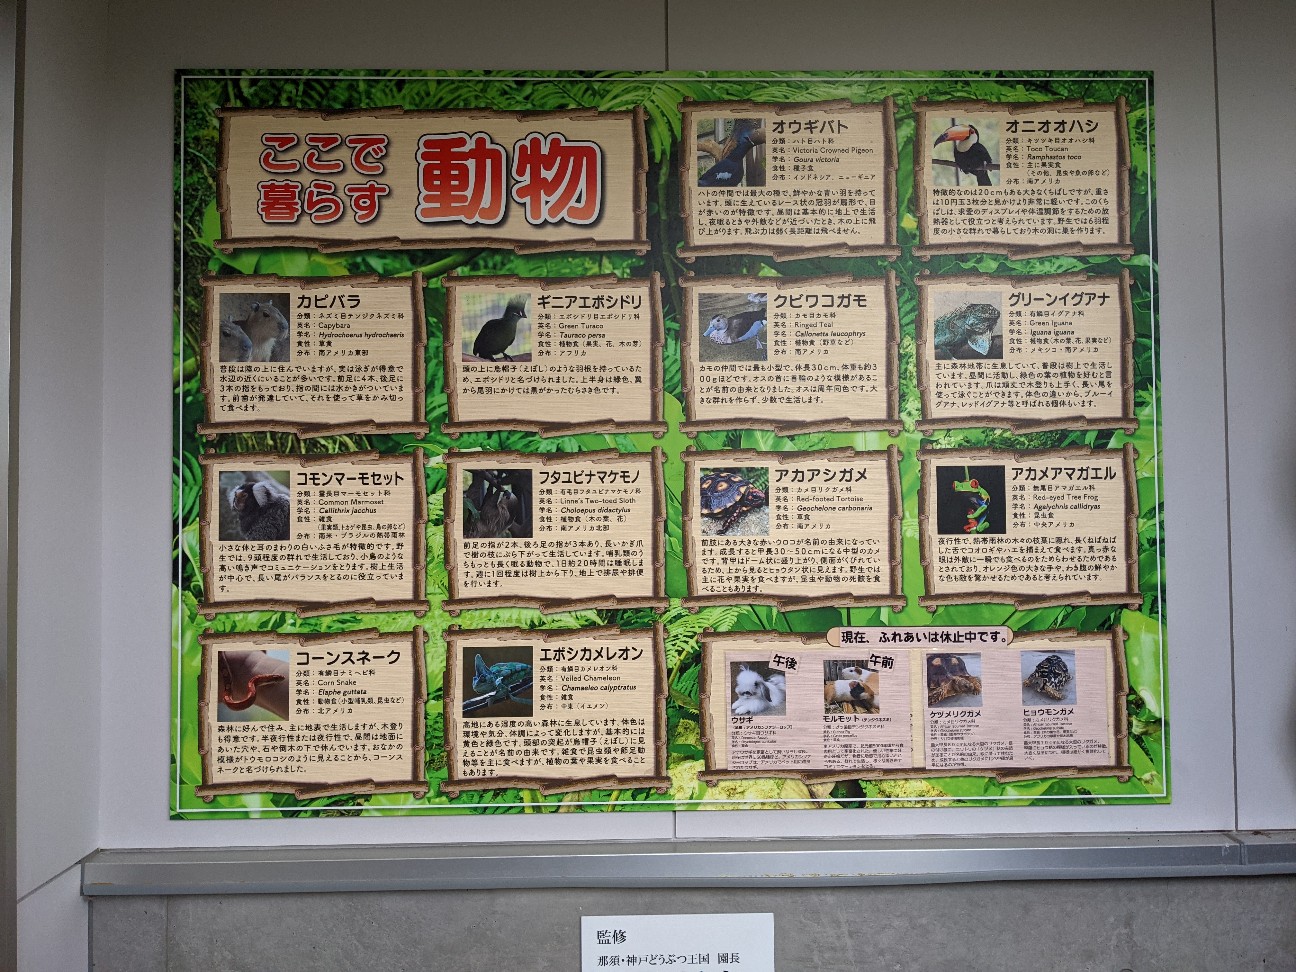 ここで
暮らす
動物
オウギバト
分類：ハト目ハト科
英名：Victoria Crowned Pigeon
学名：Goura victoria
食性：種子食
分布：インドネシア、ニューギニア
ハトの仲間では最大の種で、鮮やかな青い羽を持って
います。頭に生えているレース状の冠羽が扇形で、目
が赤いのが特徴です。昼間は基本的に地上で生活
し、夜眠るときや外敵などが近づいたとき、木の上に飛
び上がります。飛ぶ力は弱く長距離は飛べません。
オニオオハシ
分類：キツツキ目オオハシ科
英名：Toco Toucan
学名：Ramphastos toco
食性：主に果実食
（その他、昆虫や魚の卵など）
分布：南アメリカ
特徴的なのは20cmもある大きなくちばしですが、重さ
は10円玉3枚分と見かけより非常に軽いです。このくち
ばしは、求愛のディスプレイや体温調節をするための放
熱器として役立つと考えられています。野生では6羽程
度の小さな群れで暮らしており木の洞に巣を作ります。
カピバラ
分類：ネズミ目テンジクネズミ科
英名：Capybara
学名：Hydrochoerus hydrochaeris
食性：草食
分布：南アメリカ東部
普段は陸の上に住んでいますが、実は泳ぎが得意で
水辺の近くにいることが多いです。前足に4本、後足に
3本の指をもっており、指の間には水かきがついていま
す。前歯が発達していて、それを使って草をかみ切っ
て食べます。
ギニアエボシドリ
分類：エボシドリ目エボシドリ科
英名：Green Turaco
学名：Tauraco persa
食性：植物食（果実、花、木の芽）
分布：アフリカ
頭の上に烏帽子（えぼし）のような羽根を持っているた
め、エボシドリと名づけられました。上半身は緑色、翼
から尾羽にかけては黒がかったむらさき色です。
クビワコガモ
分類：カモ目カモ科
英名：Ringed Teal
学名：Callonetta leucophrys
食性：植物食（野草など）
分布：南アメリカ
カモの仲間では最も小型で、体長30cm、体重も約3
00gほどです。オスの首に首輪のような模様があるこ
とが名前の由来となりました。オスは周年同色です。大
きな群れを作らず、少数で生活します。
グリーンイグアナ
分類：有鱗目イグアナ科
英名：Green Iguana
学名：Iguana iguana
食性：植物食（木の葉、花、果実など）
分布：メキシコ・南アメリカ
主に森林地帯に生息していて、普段は樹上で生活し
ています。昼間に活動し、緑色の葉の植動を好むと言
われています。爪は頑丈で木登りも上手く、長い尾を
使って泳ぐことができます。体色の違いから、ブルーイ
グアナ、レッドイグアナ等と呼ばれる個体もいます。
コモンマーモセット
分類：霊長目マーモセット科
英名：Common Marmoset
学名：Callithrix jacchus
食性：雑食
（果実類、トカゲや昆虫、鳥の卵など）
分布：南米・ブラジルの熱帯雨林
小さな体と耳のまわりの白いふさ毛が特徴的です。野
生では、9頭程度の群れで生活しており、小鳥のような
高い鳴き声でコミュニケーションをとります。樹上生活
が中心で、長い尾がバランスをとるのに役立っていま
す。
フタユビナマケモノ
分類：有毛目フタユビナマケモノ科
英名：Linne's Two-toed Sloth
学名：Choloepus didactylus
食性：植物食（木の葉、花）
分布：南アメリカ北部
前足の指が2本、後ろ足の指が3本あり、長いかぎ爪
で樹の枝にぶら下がって生活しています。哺乳類のう
ちもっとも長く眠る動物で、1日約20時間は睡眠しま
す。週に1回程度は樹上から下り、地上で排尿や排便
を行います。
アカアシガメ
分類：カメ目リクガメ科
英名：Red-footed Tortoise
学名：Geochelone carbonaria
食性：草食
分布：南アメリカ
前肢にある大きな赤いウロコが名前の由来になってい
ます。成長すると甲長30～50cmになる中型のカメ
です。背甲はドーム状に盛り上がり、側面がくびれてい
るため、上から見るとヒョウタン状に見えます。野生では
主に花や果実を食べますが、昆虫や動物の死骸を食
べることもあります。
アカメアマガエル
分類：無尾目アマガエル科
英名：Red-eyed Tree Frog
学名：Agalychnis callidryas
食性：昆虫食
分布：中央アメリカ
夜行性で、熱帯雨林の木々の枝葉に隠れ、長くねばねば
した舌でコオロギやハエを捕まえて食べます。真っ赤な
眼は外敵に一瞬でも食べるのをためらわせるためである
とされており、オレンジ色の大きな手や、わき腹の鮮やか
な色も敵を驚かせるためであると考えられています。
コーンスネーク
分類：有鱗目ナミヘビ科
英名：Corn Snake
学名：Elaphe gutteta
食性：動物食（小型哺乳類、昆虫など）
分布：北アメリカ
森林に好んで住み、主に地表で生活しますが、木登り
も得意です。半夜行性または夜行性で、昼間は地面に
あいた穴や、石や倒木の下で休んでいます。おなかの
模様がトウモロコシのように見えることから、コーンス
ネークと名づけられました。
エボシカメレオン
分類：有鱗目カメレオン科
英名：Veiled Chameleon
学名：Chamaeleo calyptratus
食性：雑食
分布：中東（イエメン）
高地にある湿度の高い森林に生息しています。体色は
環境や気分、体調によって変化しますが、基本的には
黄色と緑色です。頭部の突起が烏帽子（えぼし）に見
えることが名前の由来です。雑食で昆虫類や節足動
物等を主に食べますが、植物の葉や果実を食べること
もあります。
現在、ふれあいは休止中です。
午後
午前
ウサギ
モルモット（テンジクネズミ）
ケヅメリクガメ
ヒョウモンガメ
監修
那須・神戸どうぶつ王国 園長